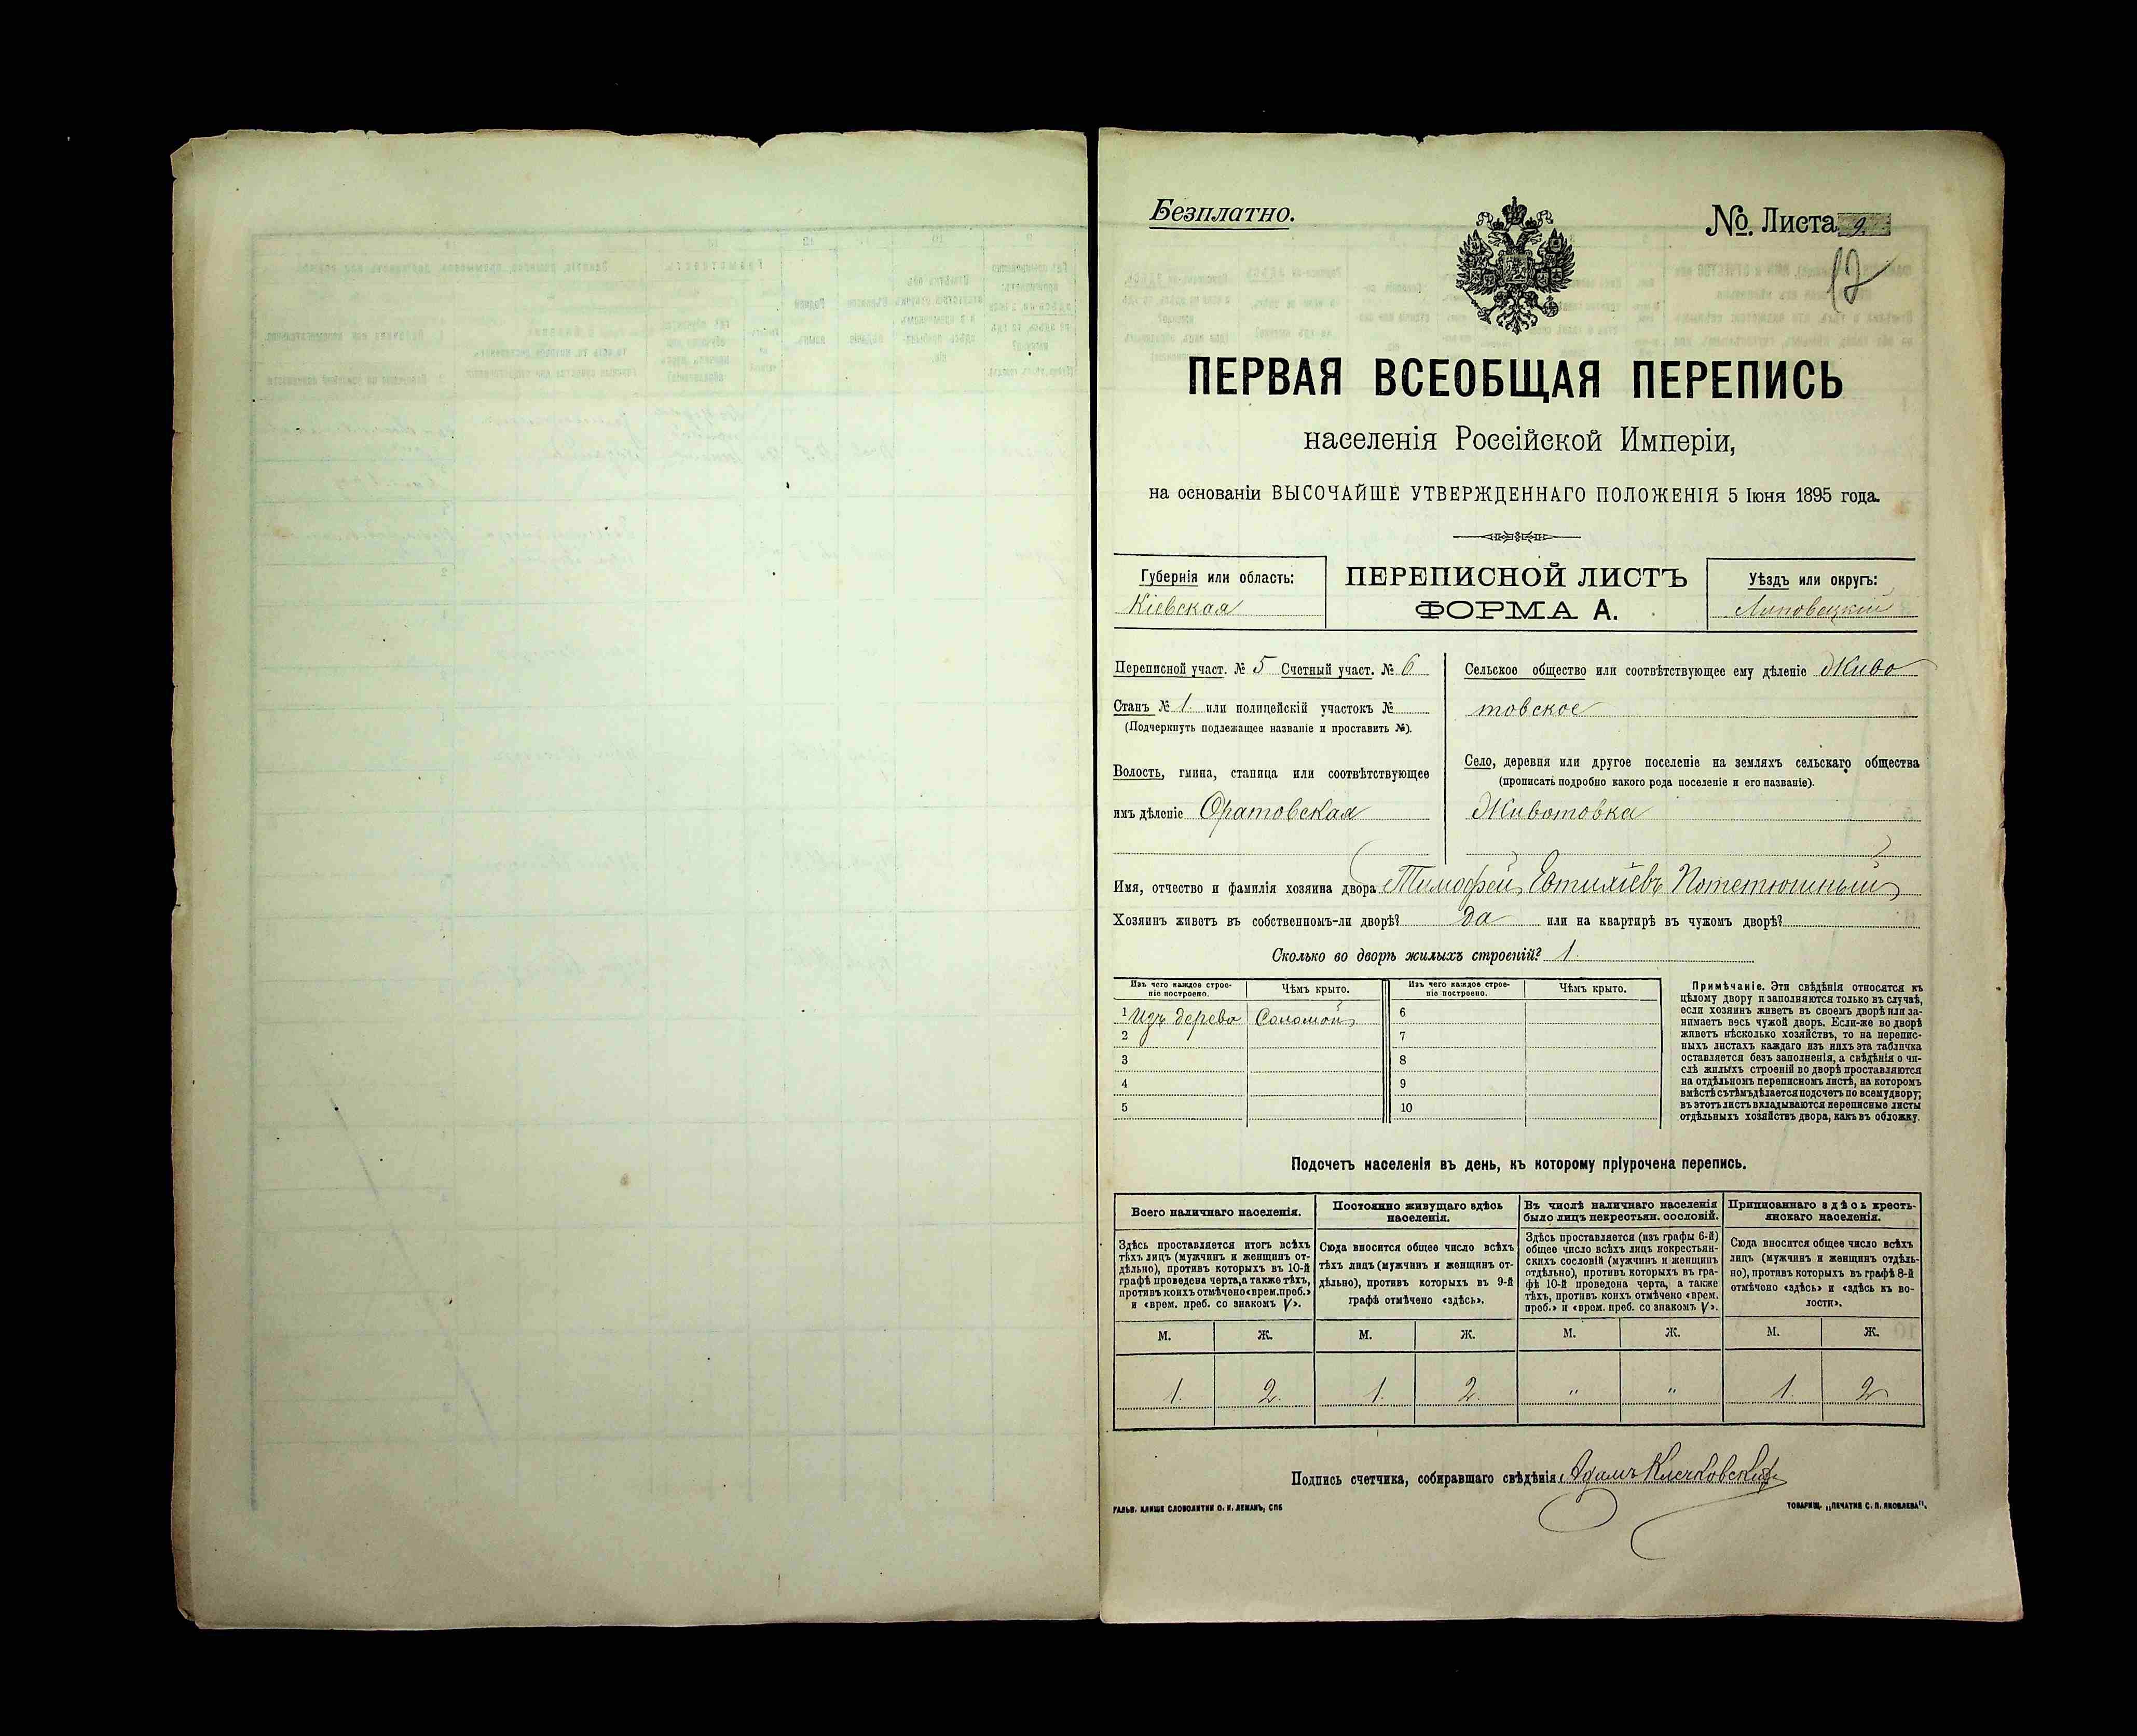 Безплатно.
№. Листа 9.
12
ПЕРВАЯ ВСЕОБЩАЯ ПЕРЕПИСЬ
населенія Россійской Имперіи,
на основаніи ВЫСОЧАЙШЕ УТВЕРЖДЕННАГО ПОЛОЖЕНІЯ 5 Іюня 1895 года.
Губернія или область:
Кіевская
ПЕРЕПИСНОЙ ЛИСТЪ
ФОРМА А.
Уѣздъ или округъ:
Липовецкій
Переписной участ. № 5 Счетный участ. № 6
Станъ № 1. или полицейскій участокъ №
(Подчеркнуть подлежащее названіе и проставить №).
Волость, гмина, станица или соотвѣтствующее
имъ дѣленіе Оратовская
Сельское общество или соотвѣтствующее ему дѣленіе Живо
товское
Село, деревня или другое поселеніе на земляхъ сельскаго общества
(прописать подробно какого рода поселеніе и его названіе).
Животовка
Имя, отчество и фамилія хозяина двора Тимофей Евтихіевъ Потетюшный
Хозяинъ живетъ въ собственномъ-ли дворѣ? Да или на квартирѣ въ чужомъ дворѣ?
Сколько во дворѣ жилыхъ строеній? 1.
Изъ чего каждое строе-
ніе построено.
Чѣмъ крыто.
Изъ чего каждое строе-
ніе построено.
Чѣмъ крыто.
1 Изъ дерева Соломой 6
2 7
3 8
4 9
5 10
Примѣчаніе. Эти свѣдѣнія относятся къ
цѣлому двору и заполняются только въ случаѣ,
если хозяинъ живетъ въ своемъ дворѣ или за-
нимаетъ весь чужой дворъ. Если-же во дворѣ
живетъ нѣсколько хозяйствъ, то на перепис-
ныхъ листахъ каждаго изъ нихъ эта табличка
оставляется безъ заполненія, а свѣдѣнія о чи-
слѣ жилыхъ строеній во дворѣ проставляются
на отдѣльномъ переписномъ листѣ, на которомъ
вмѣстѣ съ тѣмъ дѣлается подсчетъ по всему двору;
въ этотъ листъ вкладываются переписные листы
отдѣльныхъ хозяйствъ двора, какъ въ обложку.
Подсчетъ населенія въ день, къ которому пріурочена перепись.
Всего наличнаго населенія.
Здѣсь проставляется итогъ всѣхъ
тѣхъ лицъ (мужчинъ и женщинъ от-
дѣльно), противъ которыхъ въ 10-й
графѣ проведена черта, а также тѣхъ,
противъ коихъ отмѣчено «врем. преб.»
и «врем. преб. со знакомъ V».
Постоянно живущаго здѣсь
населенія.
Сюда вносится общее число всѣхъ
тѣхъ лицъ (мужчинъ и женщинъ от-
дѣльно), противъ которыхъ въ 9-й
графѣ отмѣчено «здѣсь».
Въ числѣ наличнаго населенія
было лицъ некрестьян. сословій.
Здѣсь проставляется (изъ графы 6-й)
общее число всѣхъ лицъ некрестьян-
скихъ сословій (мужчинъ и женщинъ
отдѣльно), противъ которыхъ въ гра-
фѣ 10-й проведена черта, а также
тѣхъ, противъ коихъ отмѣчено «врем.
преб.» и «врем. преб. со знакомъ V».
Приписаннаго здѣсь кресть-
янскаго населенія.
Сюда вносится общее число всѣхъ
лицъ (мужчинъ и женщинъ отдѣль-
но), противъ которыхъ въ графѣ 8-й
отмѣчено «здѣсь» и «здѣсь къ во-
лости».
М. Ж. М. Ж. М. Ж. М. Ж.
1. 2. 1. 2. " " 1. 2
Подпись счетчика, собиравшаго свѣдѣнія Адамъ Клечковскій
ГАЛЬВ. КЛИШЕ СЛОВОЛИТНИ О. И. ЛЕМАНЪ, СПБ
ТОВАРИЩ. „ПЕЧАТНЯ С. П. ЯКОВЛЕВА".